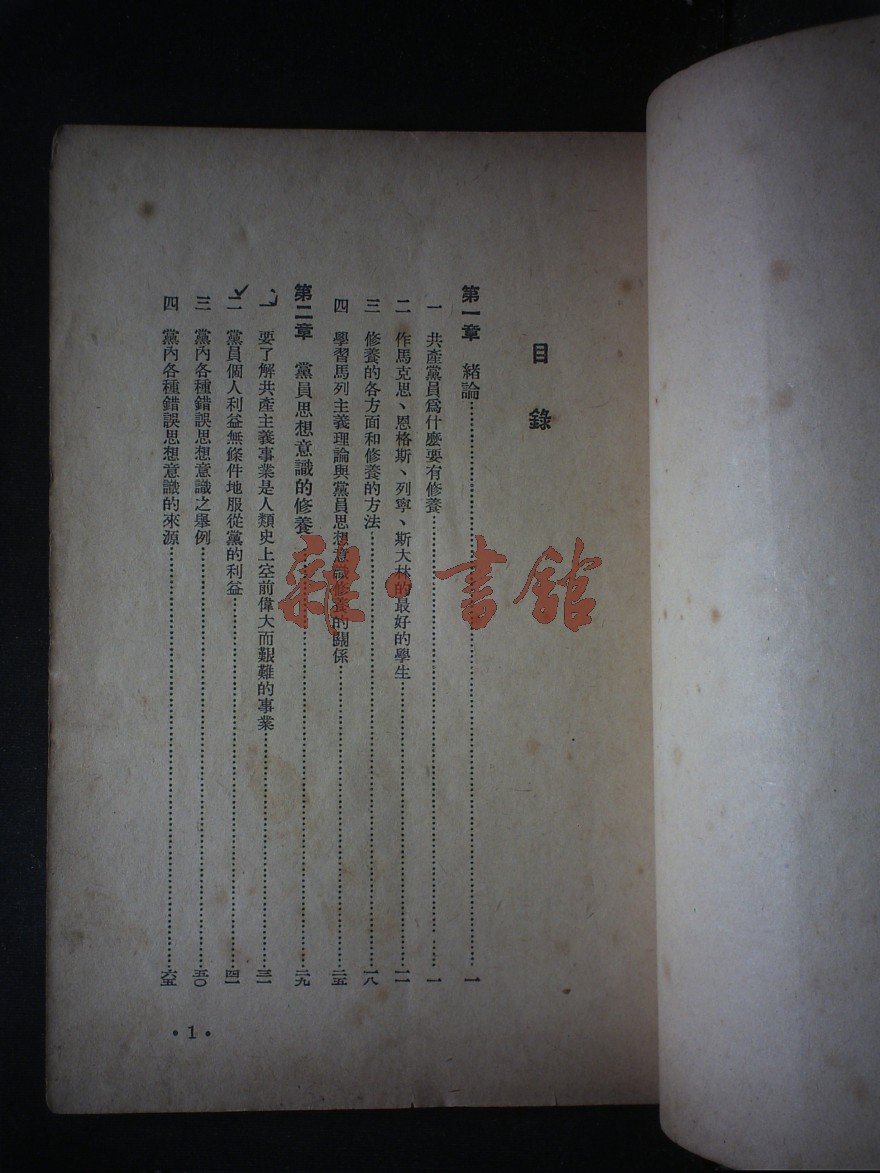 目錄
第一章　緒論……一
一　共產黨員爲什麼要有修養……一
二　作馬克思、恩格斯、列寧、斯大林的最好的學生……一一
三　修養的各方面和修養的方法……一八
四　學習馬列主義理論與黨員思想意識修養的關係……二五
第二章　黨員思想意識的修養……二九
一　要了解共產主義事業是人類史上空前偉大而艱難的事業……三一
二　黨員個人利益無條件地服從黨的利益……四一
三　黨內各種錯誤思想意識之舉例……五〇
四　黨內各種錯誤思想意識的來源……六五
•1•
雜·書舘